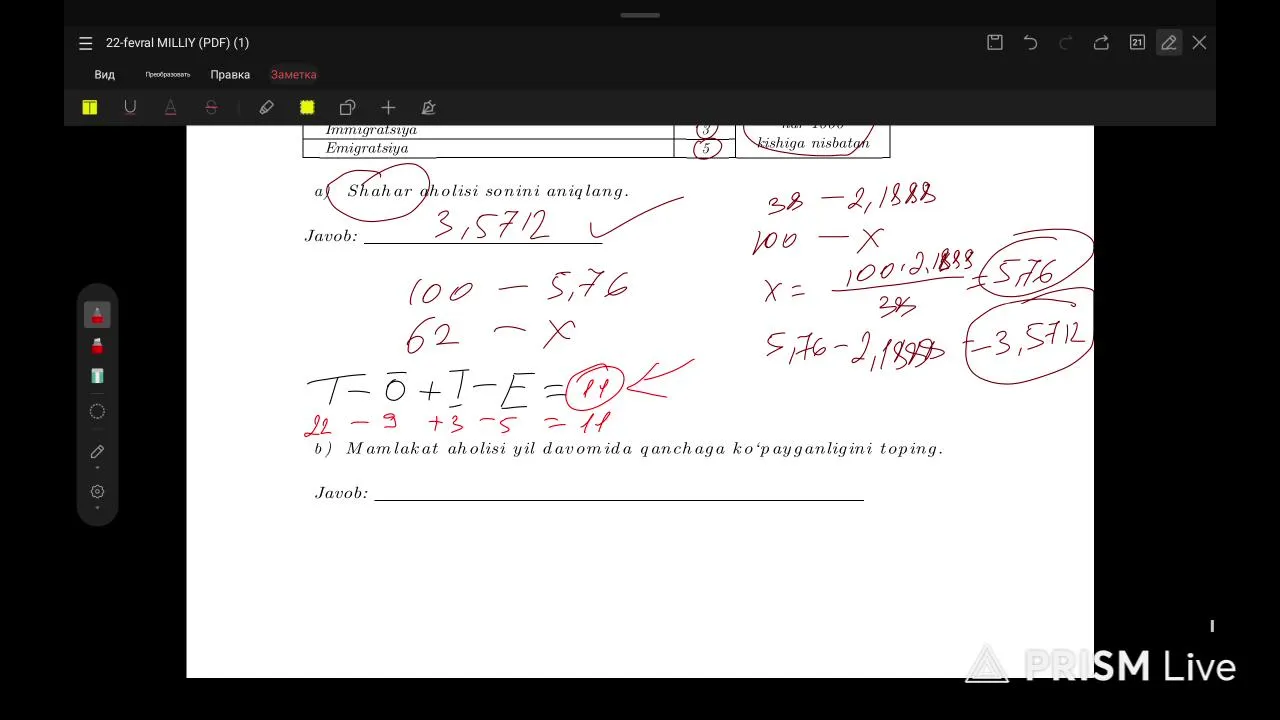 22-fevral MILLIY (PDF) (1)
21
Вид Преобразовать Правка Заметка
T U A S
Immigratsiya 3 har 1000
Emigratsiya 5 kishiga nisbatan
a) Shahar aholisi sonini aniqlang.
38 – 2,1888
Javob: 3,5712
100 – X
100 – 5,76
X = 100·2,1888 / 38 = 5,76
62 – X
5,76 – 2,1888 = 3,5712
T – Ō + I – E = 11
22 – 9 + 3 – 5 = 11
b) Mamlakat aholisi yil davomida qanchaga ko‘payganligini toping.
Javob:
PRISM Live